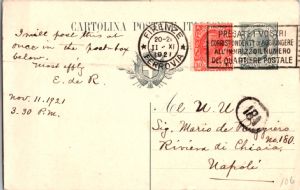 CARTOLINA POSTALE
I will post this at
once in the post-box
below.
Most affly
E. de R
Nov. 11. 1921
3.30 P.M.
FIRENZE
20-21
11-XI
1921
FERROVIA
PREGATE I VOSTRI
CORRISPONDENTI D'AGGIUNGERE
ALL'INDIRIZZO IL NUMERO
DEL QUARTIERE POSTALE
Sig. Mario de Ruggiero
No. 180.
Riviera di Chiaia,
Napoli
106